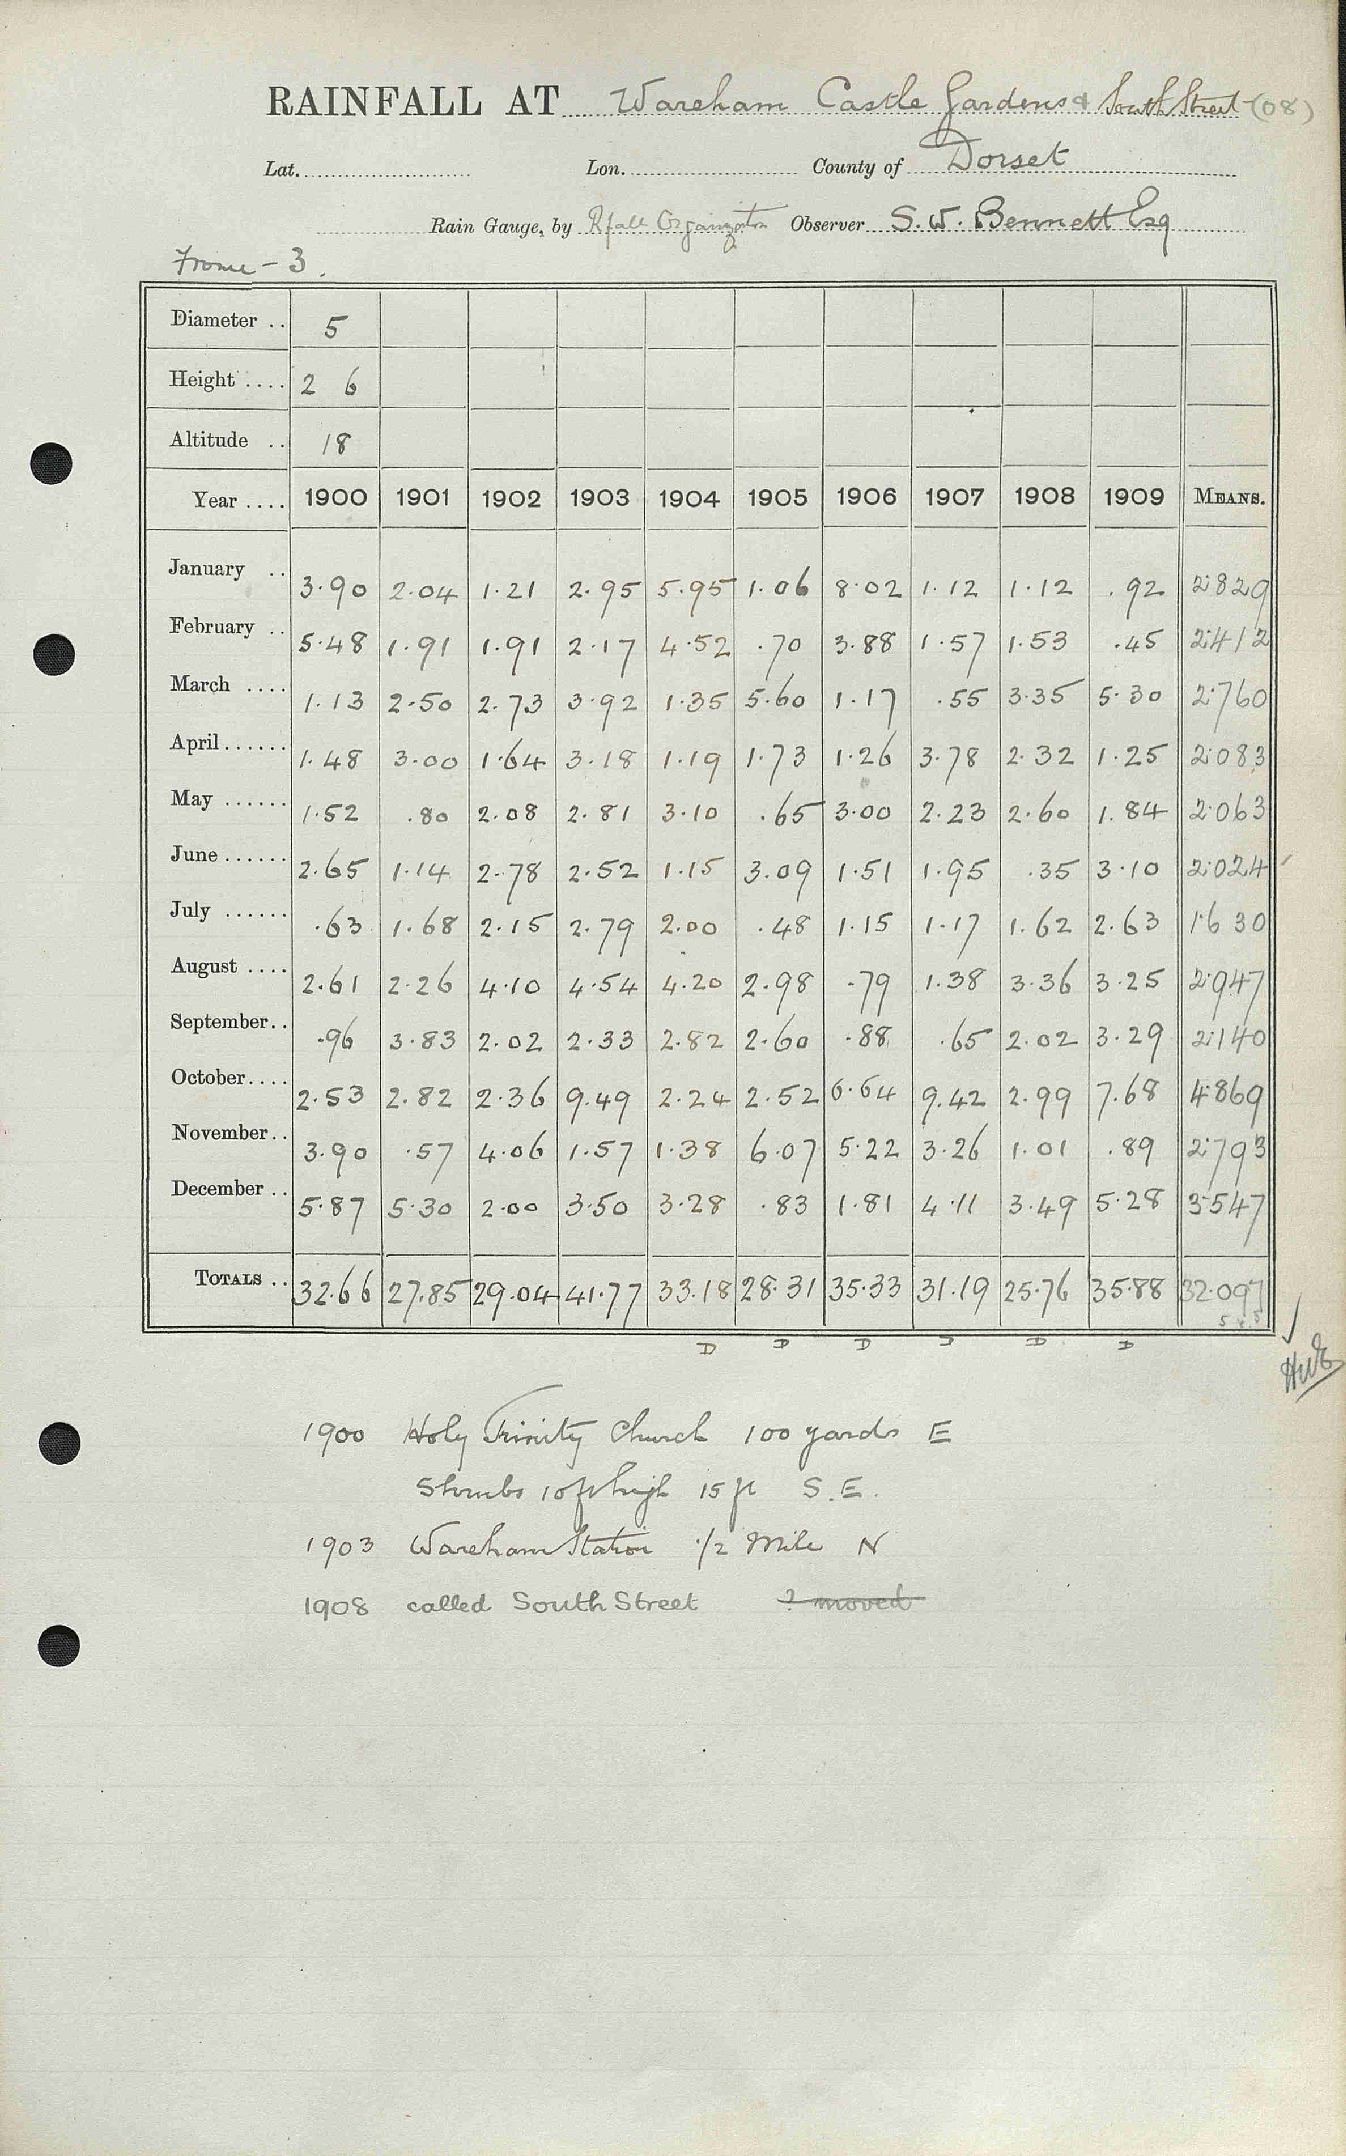 RAINFALL AT Wareham Castle Gardens & South Street (08)
Lat. Lon. County of Dorset
Rain Gauge, by Rfall Organization Observer S. W. Bennett Esq
Frome - 3.
Diameter .. 5
Height .... 2 6
Altitude .. 18
Year .... 1900 1901 1902 1903 1904 1905 1906 1907 1908 1909 MEANS.
January .. 3.90 2.04 1.21 2.95 5.95 1.06 8.02 1.12 1.12 .92 2.829
February .. 5.48 1.91 1.91 2.17 4.52 .70 3.88 1.57 1.53 .45 2.412
March .... 1.13 2.50 2.73 3.92 1.35 5.60 1.17 .55 3.35 5.30 2.760
April...... 1.48 3.00 1.64 3.18 1.19 1.73 1.26 3.78 2.32 1.25 2.083
May ...... 1.52 .80 2.08 2.81 3.10 .65 3.00 2.23 2.60 1.84 2.063
June ...... 2.65 1.14 2.78 2.52 1.15 3.09 1.51 1.95 .35 3.10 2.024
July ...... .63 1.68 2.15 2.79 2.00 .48 1.15 1.17 1.62 2.63 1.630
August .... 2.61 2.26 4.10 4.54 4.20 2.98 .79 1.38 3.36 3.25 2.947
September.. .96 3.83 2.02 2.33 2.82 2.60 .88 .65 2.02 3.29 2.140
October.... 2.53 2.82 2.36 9.49 2.24 2.52 6.64 9.42 2.99 7.68 4.869
November.. 3.90 .57 4.06 1.57 1.38 6.07 5.22 3.26 1.01 .89 2.793
December .. 5.87 5.30 2.00 3.50 3.28 .83 1.81 4.11 3.49 5.28 3.547
TOTALS .. 32.66 27.85 29.04 41.77 33.18 28.31 35.33 31.19 25.76 35.88 32.097
D D D D D D
1900 Holy Trinity Church 100 yards E
Shrubs 10ft high 15 ft S.E.
1903 Wareham Station 1/2 Mile N
1908 called South Street ? moved